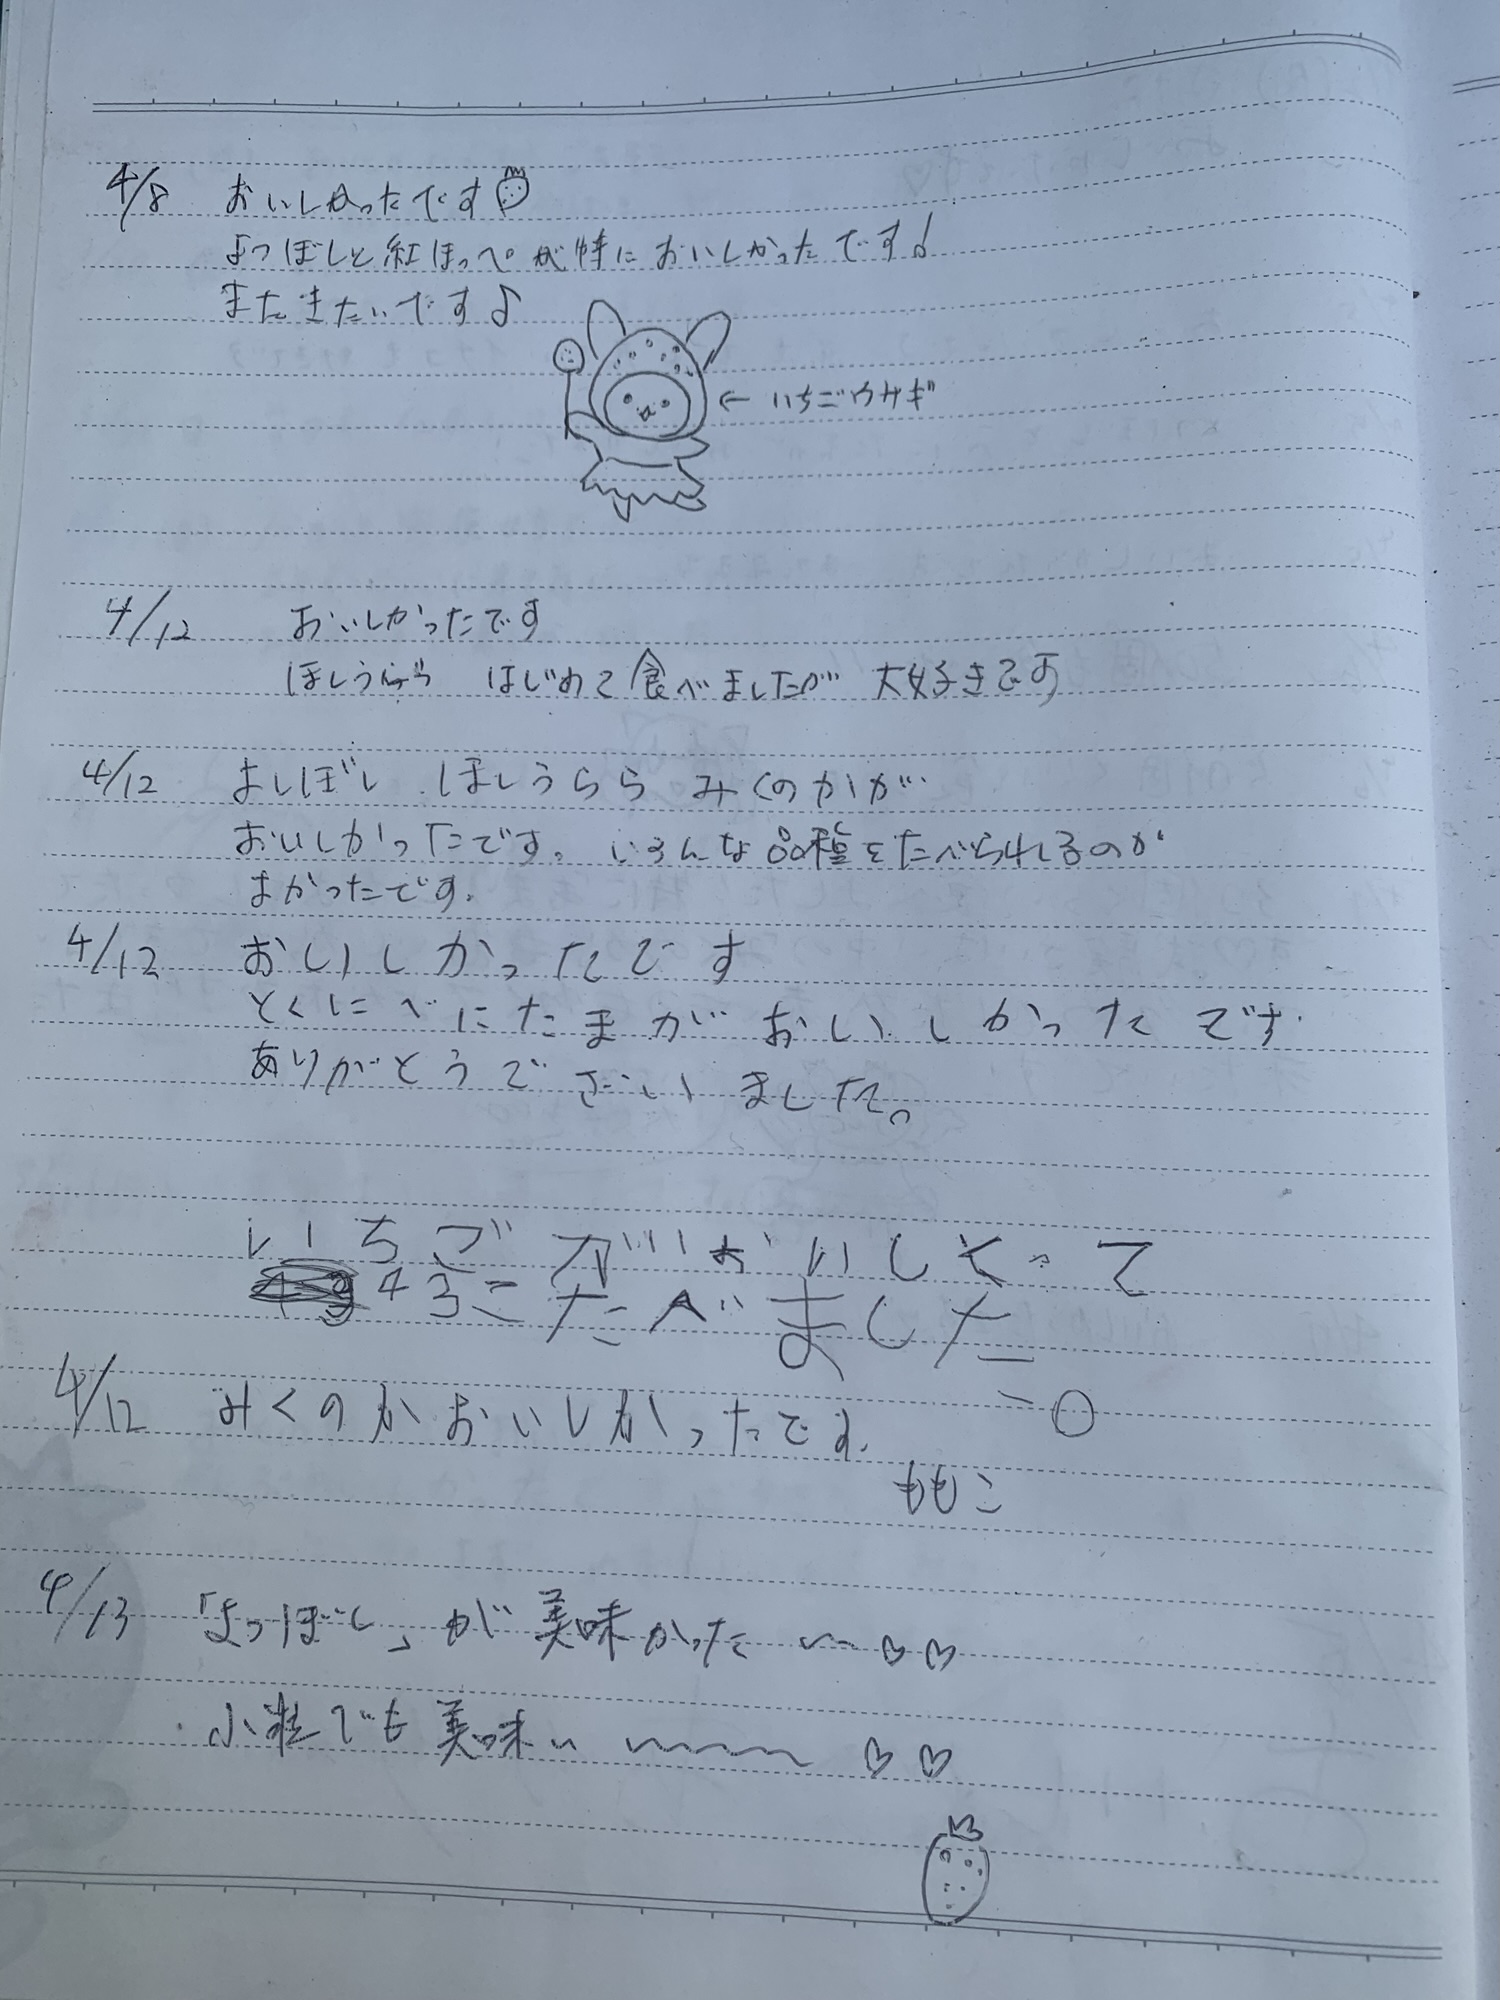 4/8 おいしかったです
よつぼしと紅ほっぺが特においしかったです♪
またきたいです♪
←いちごウサギ
4/12 おいしかったです
ほしうらら はじめて食べましたが 大好きです
4/12 よしぼし ほしうらら みくのかが
おいしかったです。いろんな品種をたべられるのが
よかったです。
4/12 おいしかったです
とくにべにたまがおいしかったです。
ありがとうございました。
いちごがおいしくって
43こたべました。
4/12 みくのかおいしかったです。
ももこ
4/13 「よつぼし」が美味かった〜♡♡
小粒でも美味い〜〜〜♡♡